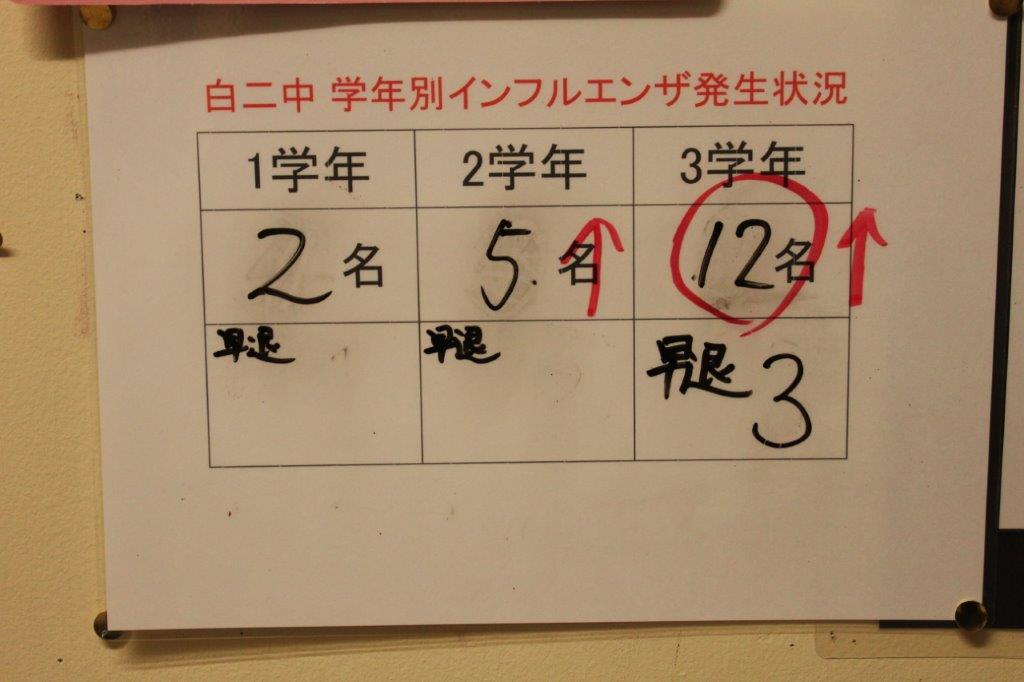 白二中 学年別インフルエンザ発生状況
1学年 2学年 3学年
2名 5名 ↑ 12名 ↑
早退 早退 早退 3